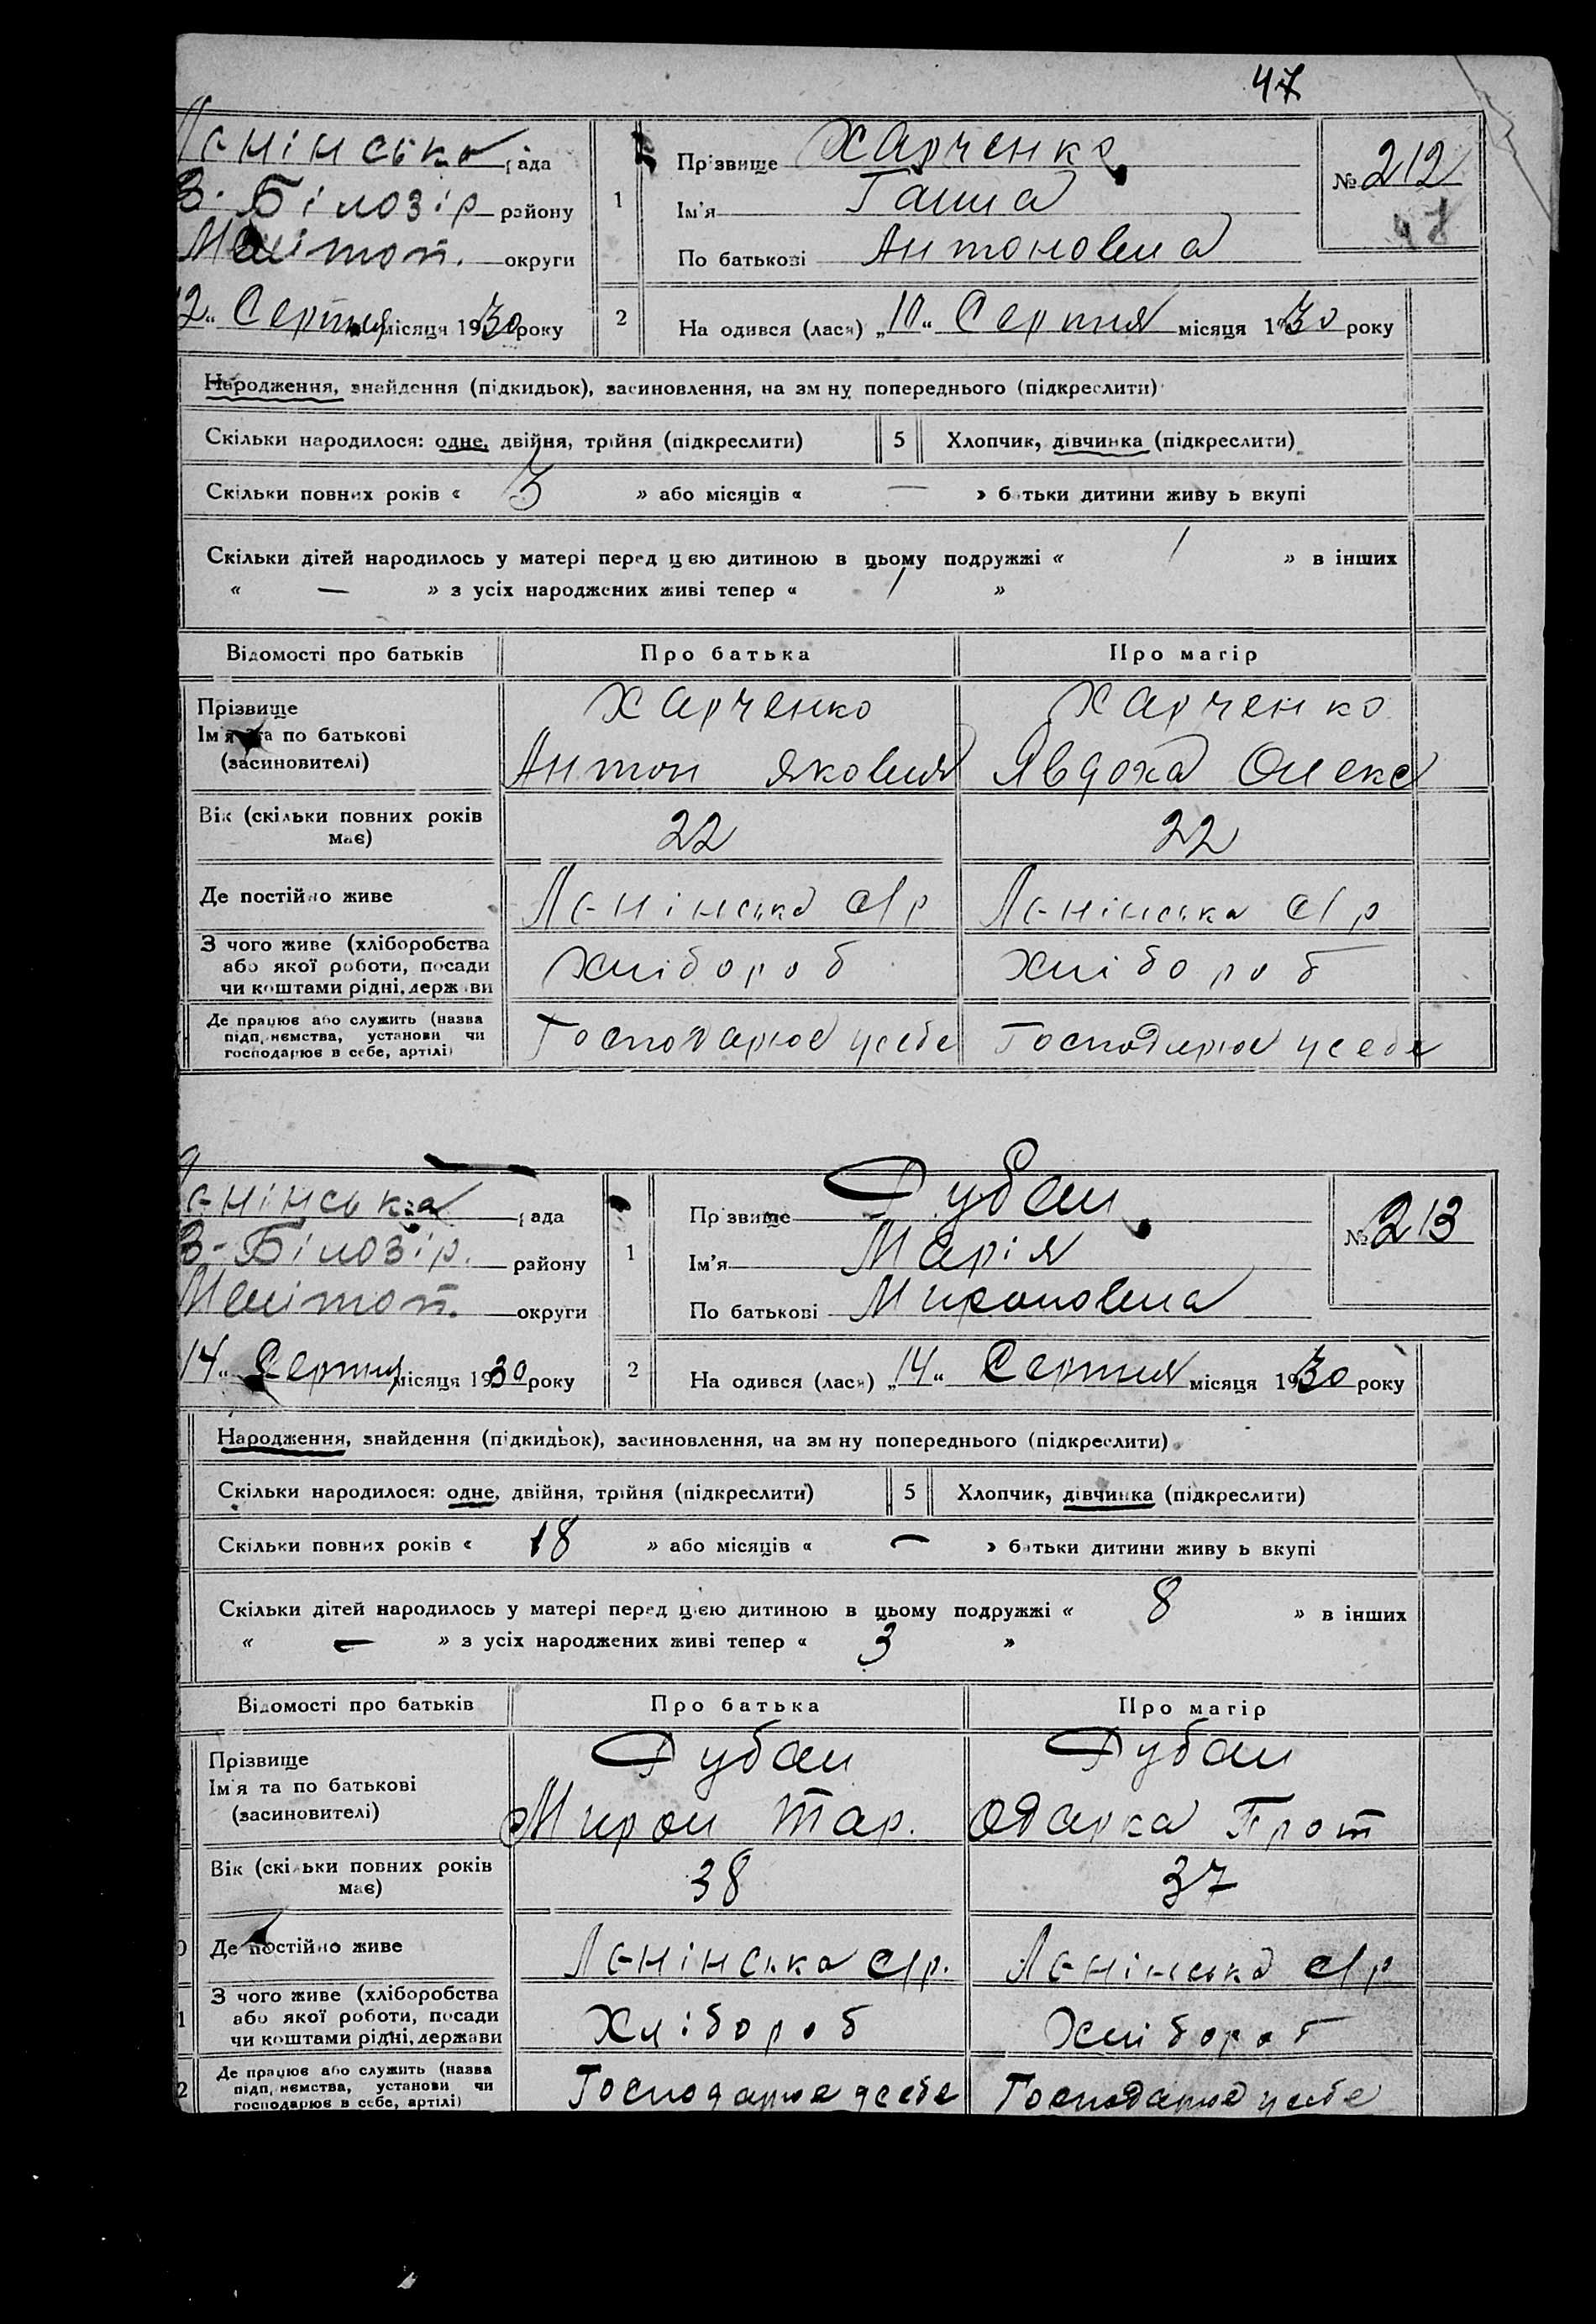 47
Лєнінська рада
1
Прізвище Харченко
№ 212
В-Білозір району
Ім'я Ганна
47
Мелітоп. округи
По батькові Антоновна
12 „ Серпня місяця 1930 року
2
На одився (лася) „10“ Серпня місяця 1930 року
Народження, знайдення (підкидьок), засиновлення, на зм ну попереднього (підкреслити)
Скільки народилося: одне, двійня, трійня (підкреслити)
5
Хлопчик, дівчинка (підкреслити)
Скільки повних років « 3 » або місяців « — » батьки дитини живу ь вкупі
Скільки дітей народилось у матері перед цією дитиною в цьому подружжі « 1 » в інших
« — » з усіх народжених живі тепер « 1 »
Відомості про батьків
Про батька
Про матір
Прізвище
Ім'я та по батькові
(засиновителі)
Харченко
Антон Яковля
Харченко
Явдоха Олекс
Вік (скільки повних років
має)
22
22
Де постійно живе
Лєнінська с/р
Лєнінська с/р
З чого живе (хліборобства
або якої роботи, посади
чи коштами рідні, держави
Хлібороб
Хлібороб
Де працює або служить (назва
підп, иємства, установи чи
господарює в себе, артілі)
Господарює у себе
Господарює у себе
Лєнінська рада
1
Прізвище Дубан
№ 213
В-Білозір. району
Ім'я Марія
Мелітоп. округи
По батькові Мироновна
14 „ Серпня місяця 1930 року
2
На одився (лася) „14“ Серпня місяця 1930 року
Народження, знайдення (підкидьок), засиновлення, на зм ну попереднього (підкреслити)
Скільки народилося: одне, двійня, трійня (підкреслити)
5
Хлопчик, дівчинка (підкреслити)
Скільки повних років « 18 » або місяців « — » батьки дитини живу ь вкупі
Скільки дітей народилось у матері перед цією дитиною в цьому подружжі « 8 » в інших
« — » з усіх народжених живі тепер « 3 »
Відомості про батьків
Про батька
Про матір
Прізвище
Ім'я та по батькові
(засиновителі)
Дубан
Мирон Тар.
Дубан
Одарка Прот
Вік (скільки повних років
має)
38
37
Де постійно живе
Лєнінська с/р.
Лєнінська с/р
З чого живе (хліборобства
або якої роботи, посади
чи коштами рідні, держави
Хлібороб
Хлібороб
Де працює або служить (назва
підп, иємства, установи чи
господарює в себе, артілі)
Господарює у себе
Господарює у себе